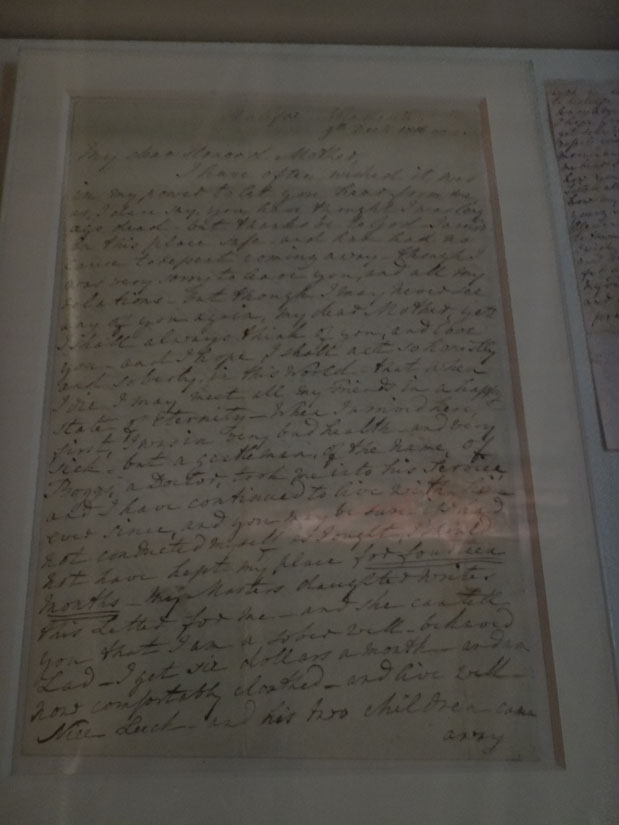 Halifax
9th Decr
My dear Honor'd Mother,
I have often wished it was
in my power to let you hear from me
as I dare say you have thought I was long
ago dead - but thanks be to God I am
in this place safe - and have had no
cause to repent coming away - though I
was very sorry to leave you, and all my
relations - but though I may never see
any of you again, my dear Mother, yet
I shall always think of you, and love
you - and I hope I shall act so honestly
and so justly in this world - that when
I die I may meet all my Friends in a happy
state of Eternity - When I arrived here
first, I was in very bad health - and very
sick - but a gentleman of the name of
a Doctor, took me into his Service
and I have continued to live with him
ever since, and you may be sure if I had
not conducted myself as I ought, I should
not have kept my place for fourteen
months - My Masters daughter writes
this Letter for me - and she can tell
you that I am a sober well-behaved
Lad - I get six dollars a month - and am
now comfortably cloathed - and live well -
and his two children came
away